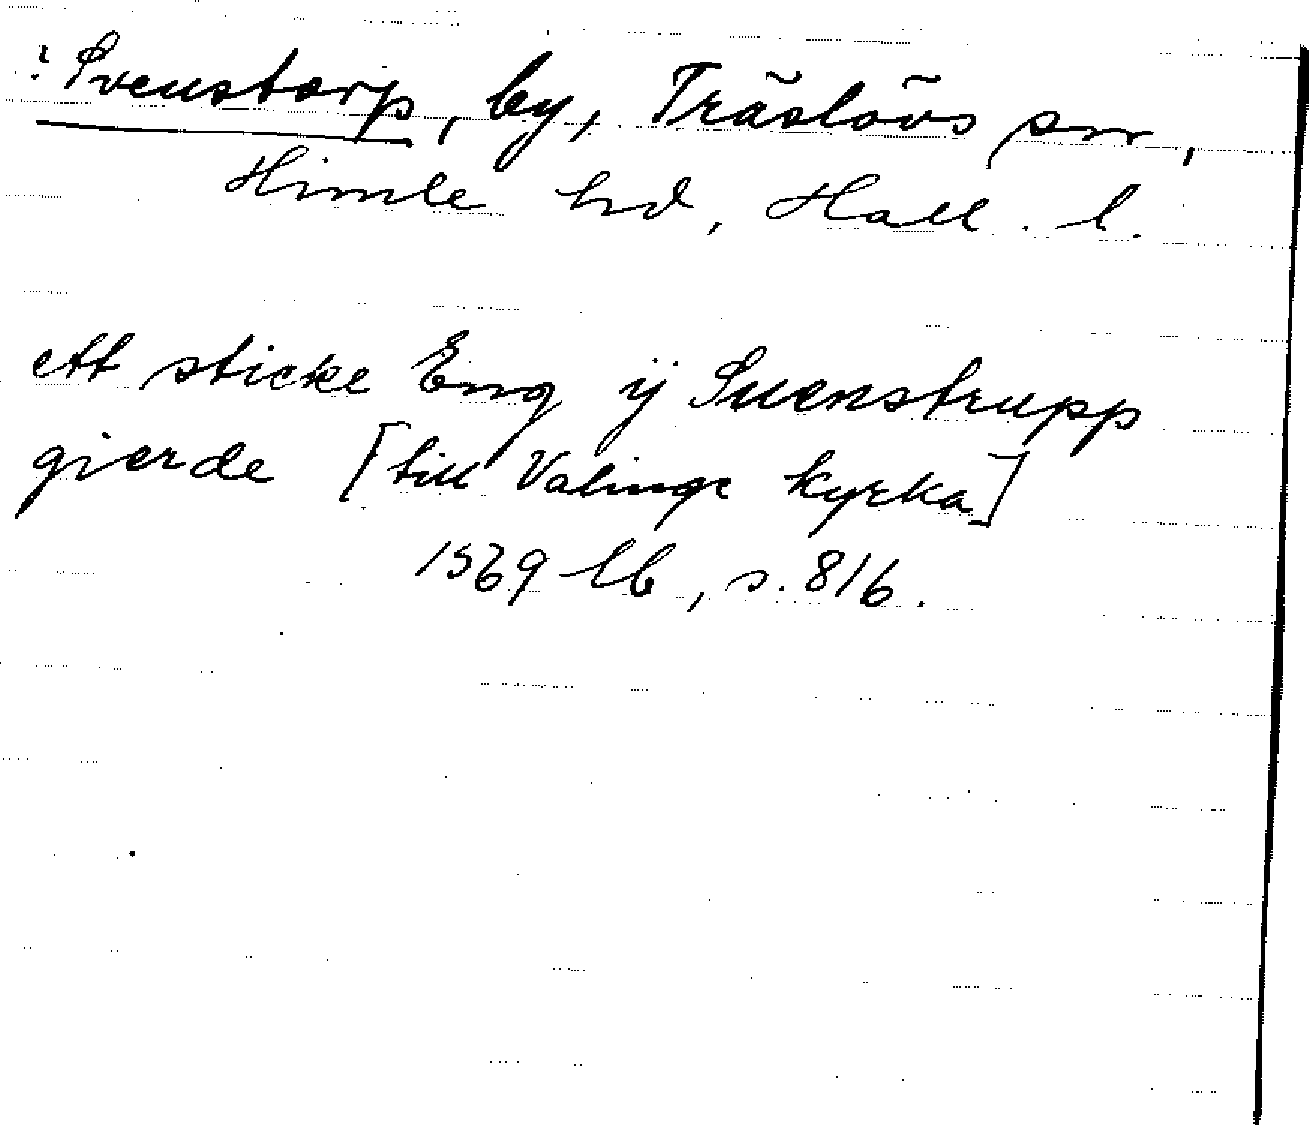 ? Svenstorp, by, Träslövs sn,
Himle hd, Hall. l.
ett sticke Eng ij Suenstrupp
gierde [till Valinge kyrka]
1569 lb, s. 816.